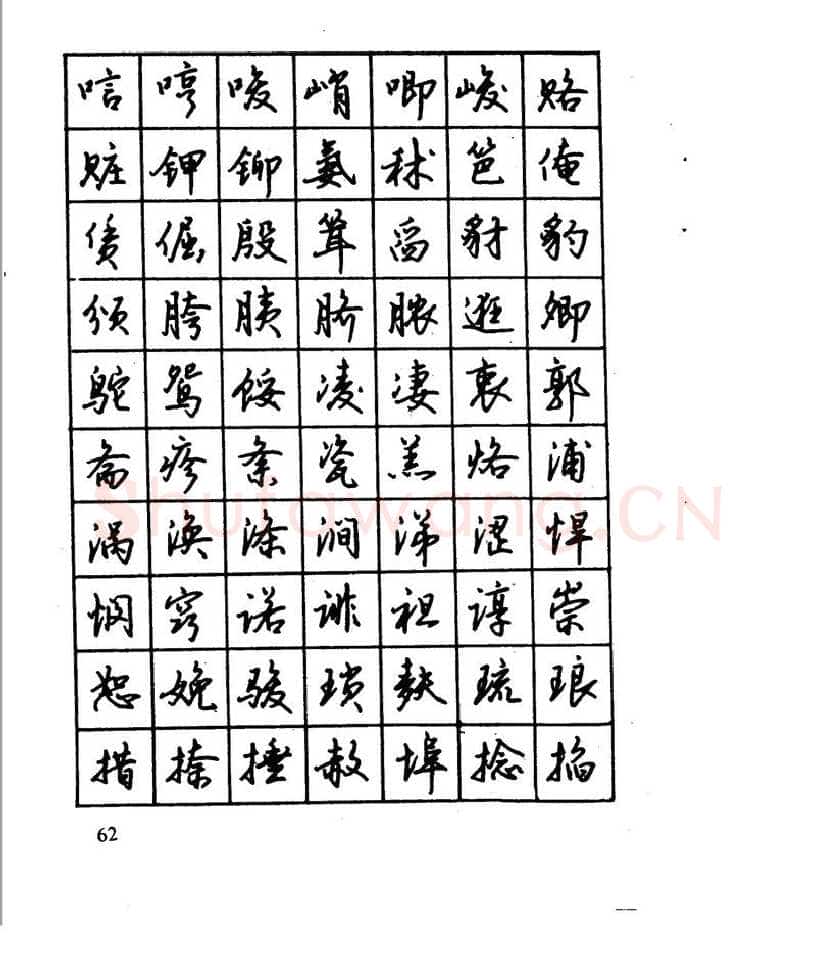 唁 哼 唆 峭 唧 峻 赂
赃 钾 铆 氨 秫 笆 俺
赁 倔 殷 耸 舀 豺 豹
颁 胯 胰 脐 脓 逛 卿
鸵 鸳 馁 凌 凄 衷 郭
斋 疹 紊 瓷 羔 烙 浦
涡 涣 涤 涧 涕 涩 悍
悯 窍 诺 诽 袒 谆 祟
恕 娩 骏 琐 麸 琉 琅
措 捺 捶 赦 埠 捻 掐
62
Shufawang.CN